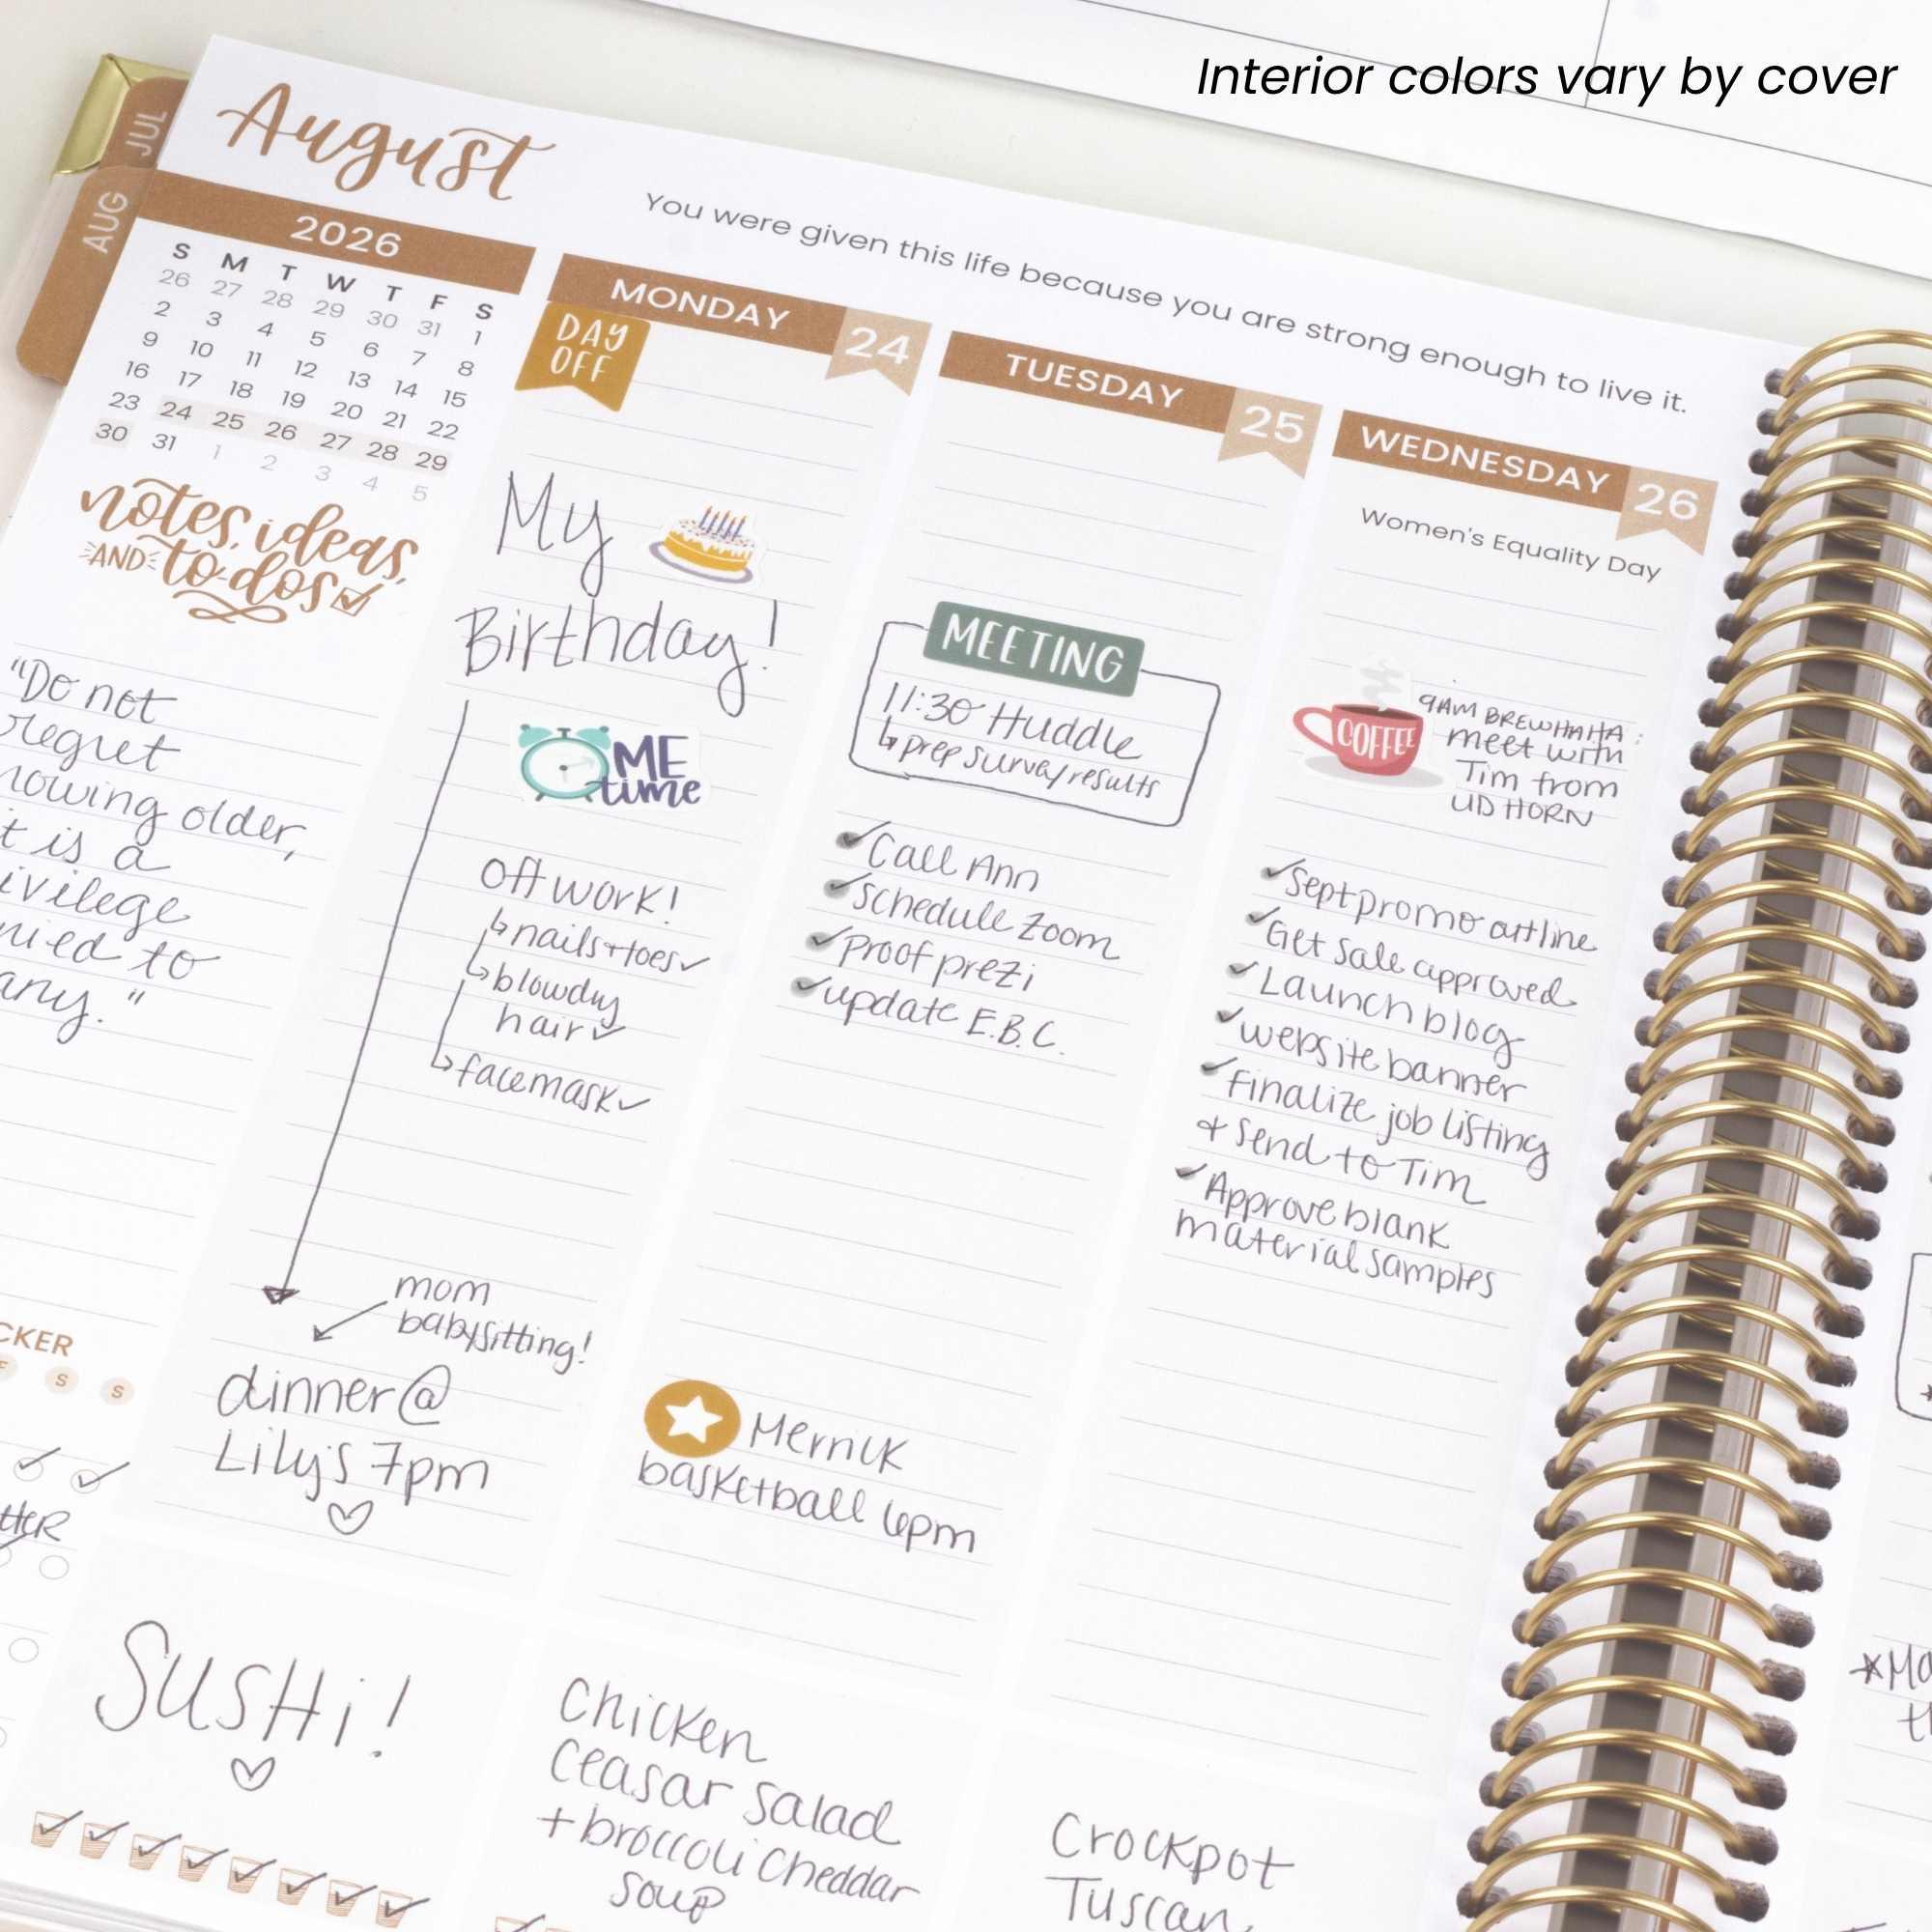 Interior colors vary by cover
JUL
AUG
August
You were given this life because you are strong enough to live it.
2026
S M T W T F S
26 27 28 29 30 31 1
2 3 4 5 6 7 8
9 10 11 12 13 14 15
16 17 18 19 20 21 22
23 24 25 26 27 28 29
30 31 1 2 3 4 5
notes, ideas,
AND to-dos
"Do not
regret
older,
is a
to
any."
CKER
S S
MONDAY 24
DAY
OFF
My
Birthday!
ME
time
Off work!
nails + toes
blowdry
hair
facemask
mom
babysitting!
dinner @
Lily's 7pm
SUSHi!
TUESDAY 25
MEETING
11:30 Huddle
prep survey results
Call Ann
Schedule Zoom
Proof prezi
update E.B.C.
basketball 6pm
Chicken
Ceasar Salad
+ broccoli Cheddar
Soup
WEDNESDAY 26
Women's Equality Day
COFFEE
9AM BREWHAHA:
meet with
Tim from
UD HORN
Sept promo
Get Sale approved
Launch blog
website banner
Finalize job listing
+ Send to Tim
Approve blank
material samples
Crockpot
Tuscan